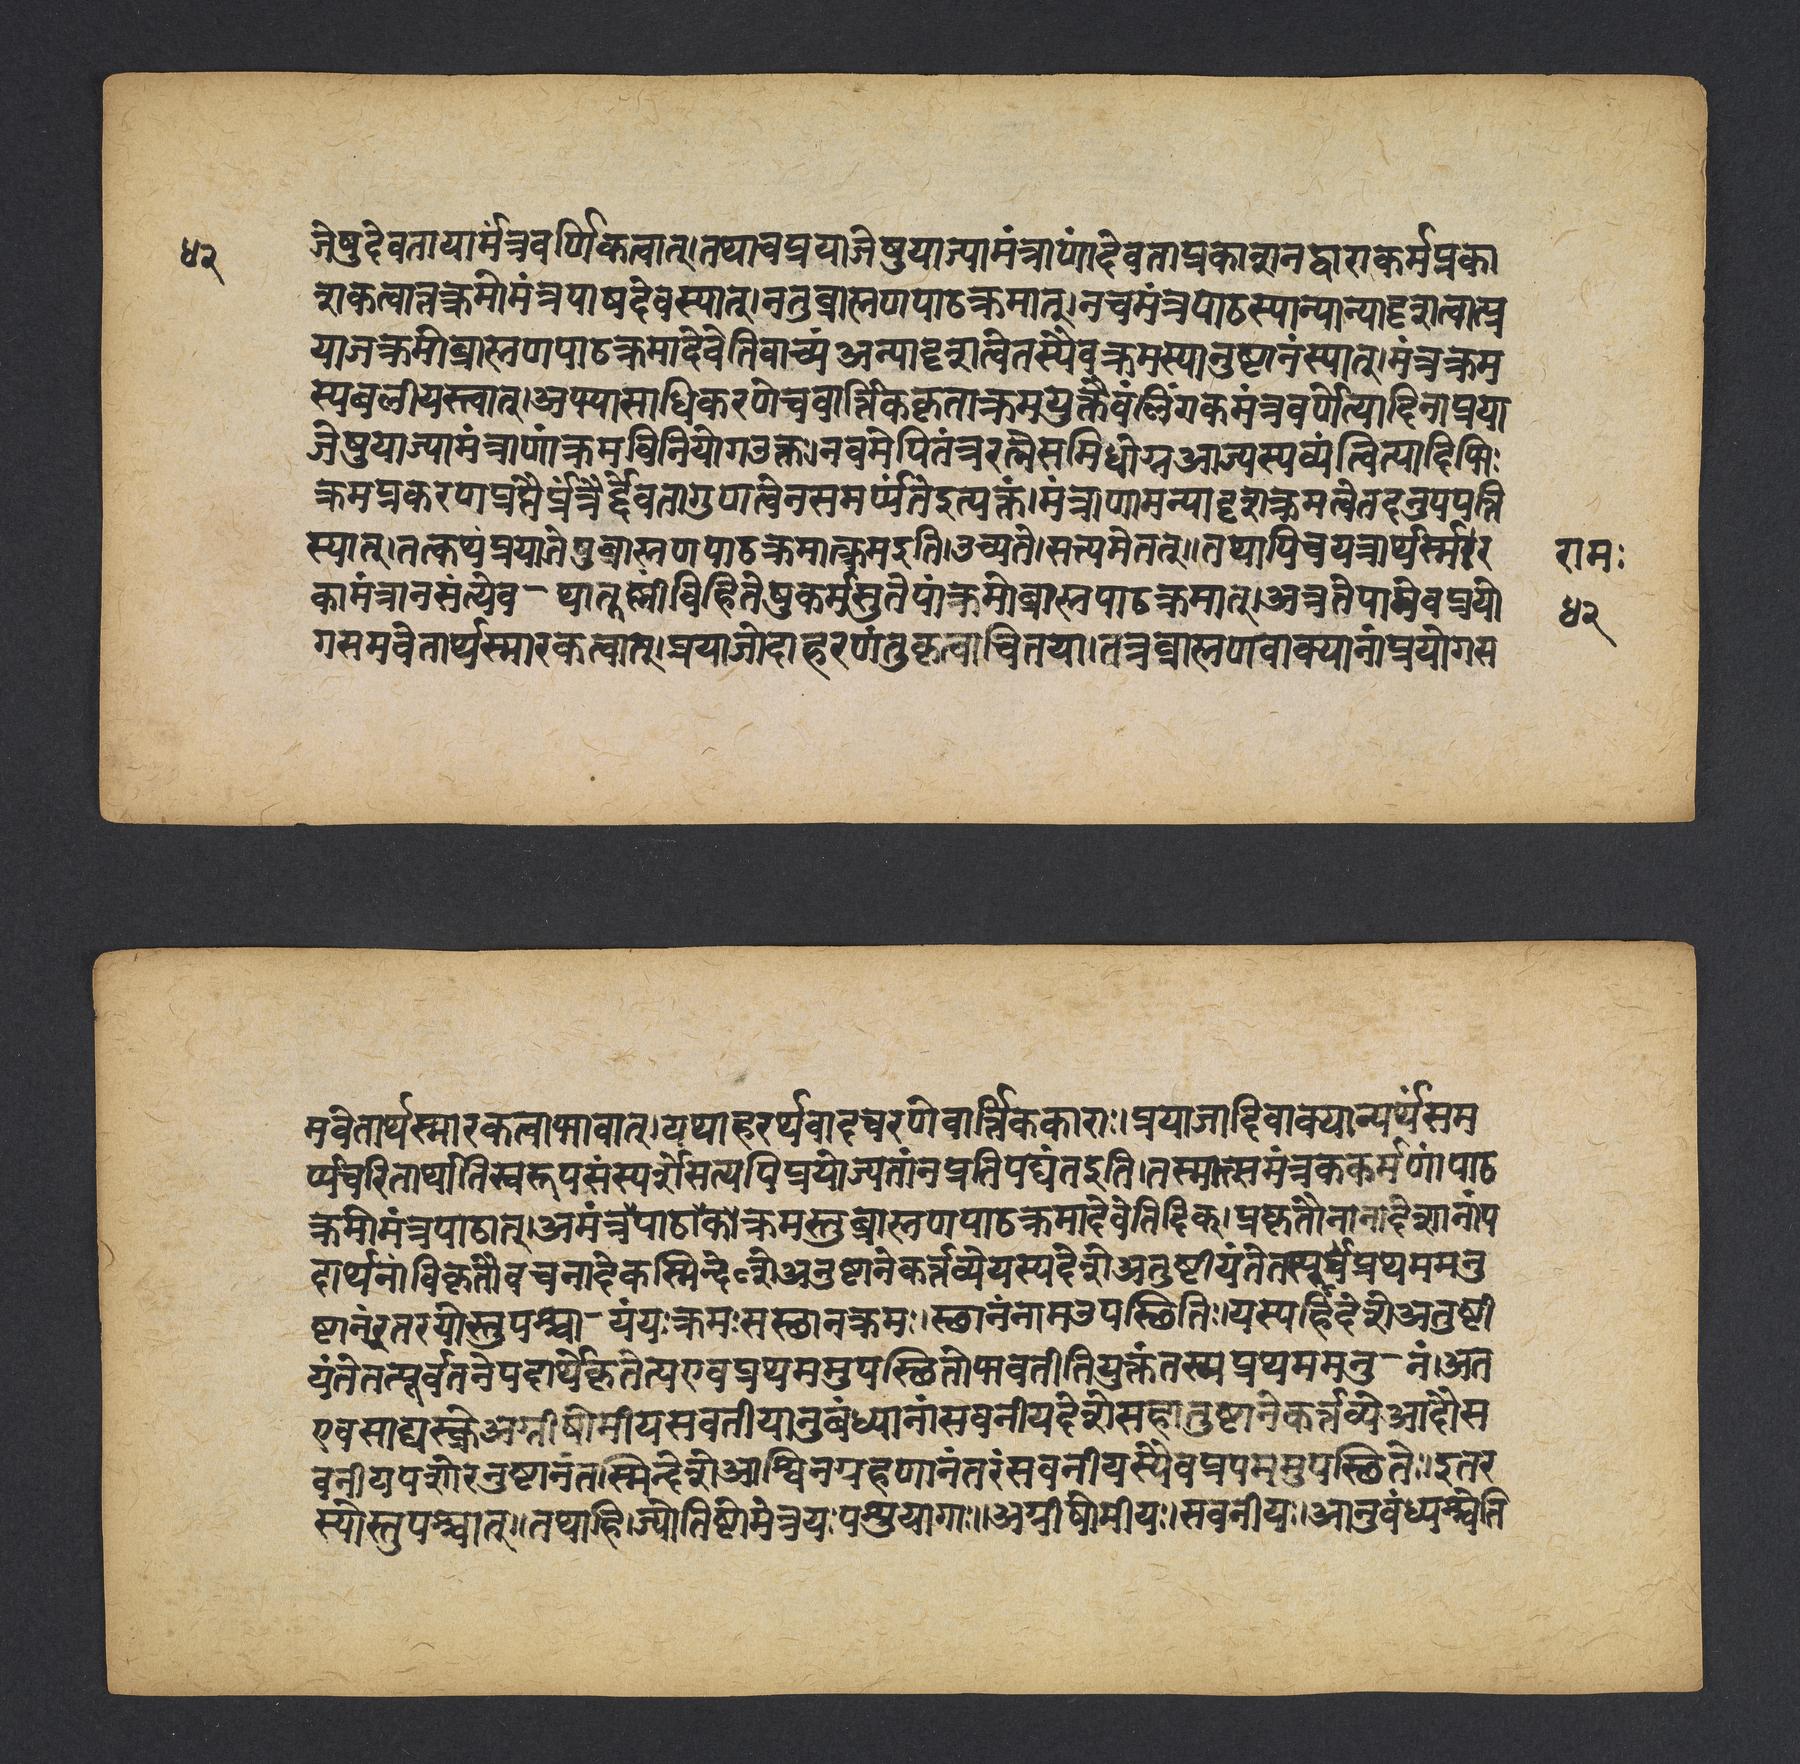 ४२
जेषुदेवतायार्मंत्रवर्णिकत्वात्।तथाचप्रयाजेषुयाज्यामंत्राणांदेवताप्रकाशनद्वाराकर्मप्रका
शकत्वात्तत्क्रमोमंत्रपाठादेवस्यात्।नतुब्राह्मणपाठक्रमात्।नचमंत्रपाठस्यान्यान्यादृशत्वात्प्र
याजक्रमोब्राह्मणपाठक्रमादेवेतिवाच्यं अन्यादृशत्वेतस्यैवक्रमस्यानुष्टानंस्यात्।मंत्रक्रम
स्यबलीयस्त्वात्।अभ्यासाधिकरणेचवार्त्तिककृताक्रमयुक्तैवंलिंगकमंत्रवर्णेत्यादिनाप्रया
जेषुयाज्यामंत्राणांक्रमविनियोगउक्तः।नवमेपितंत्ररत्नेसमिधोग्नआज्यस्यव्यंत्वित्यादिभिः
क्रमप्रकरणप्राप्तैर्मंत्रैर्द्देवतागुणत्वेनसमर्प्यतेइत्युक्तं।मंत्राणामन्यादृशक्रमत्वेतदनुपपत्ति
स्यात्।तत्कथंप्रयातेषुब्राह्मणपाठक्रमात्क्रमइति।उच्यते।सत्यमेतत्॥तथापिचयत्रार्थस्मार
कामंत्रानसंत्येव-थातूष्णींविहितेषुकर्मसुतेषांक्रमोब्राह्मपाठक्रमात्।अत्रतेषामेवप्रयो
गसमवेतार्थस्मारकत्वात्।प्रयाजोदाहरणंतुकृत्वाचितया।तत्रब्राह्मणवाक्यानांप्रयोगस
रामः
४२
मवेतार्थस्मारकत्वाभावात्।यथाहरर्थवादचरणेवार्त्तिककाराः।प्रयाजादिवाक्यान्यर्थंसम
र्प्यचरितार्थातिस्वरूपसंस्पर्शेसत्यपिप्रयोज्यतांनप्रतिपद्यंतइति।तस्मात्समंत्रककर्मणांपाठ
क्रमोमंत्रपाठात्।अमंत्रपाठाकोक्रमस्तुब्राह्मणपाठक्रमादेवेतिदिक्।प्रकृतौनानादेशानांप
दार्थनांविकृतौवचनादेकस्मिन्देशेअनुष्टानेकर्त्तव्येयस्यदेशेअनुष्टीयंतेतत्पूर्वंप्रथममनु
ष्टानंइतरयोस्तुपश्चा-यंयःक्रमःसस्छानक्रमः।स्छानंनामउपस्छितिः।यस्यहिदेशेअनुष्टी
यंतेतत्पूर्वतनेपदार्थेकृतेत्यएवप्रथममुपस्छितोभवतीतियुक्तंतस्यप्रथममनु-नं।अत
एवसाद्यस्क्रेअग्नीषोमीयसवतीयानुबंध्यानांसवनीयदेशेसहानुष्टानेकर्त्तव्येआदौस
वनीयपशोरनुष्टानंतस्मिन्देशेआश्विनग्रहणानंतरंसवनीयस्यैवप्रथममुपस्छितेः।इतर
स्योस्तुपश्चात्॥तथाहि।ज्योतिष्टोमेत्रयःपश्रुयागाः॥अग्नीषोमीयः।सवनीयः।आनुबंध्यश्चेति